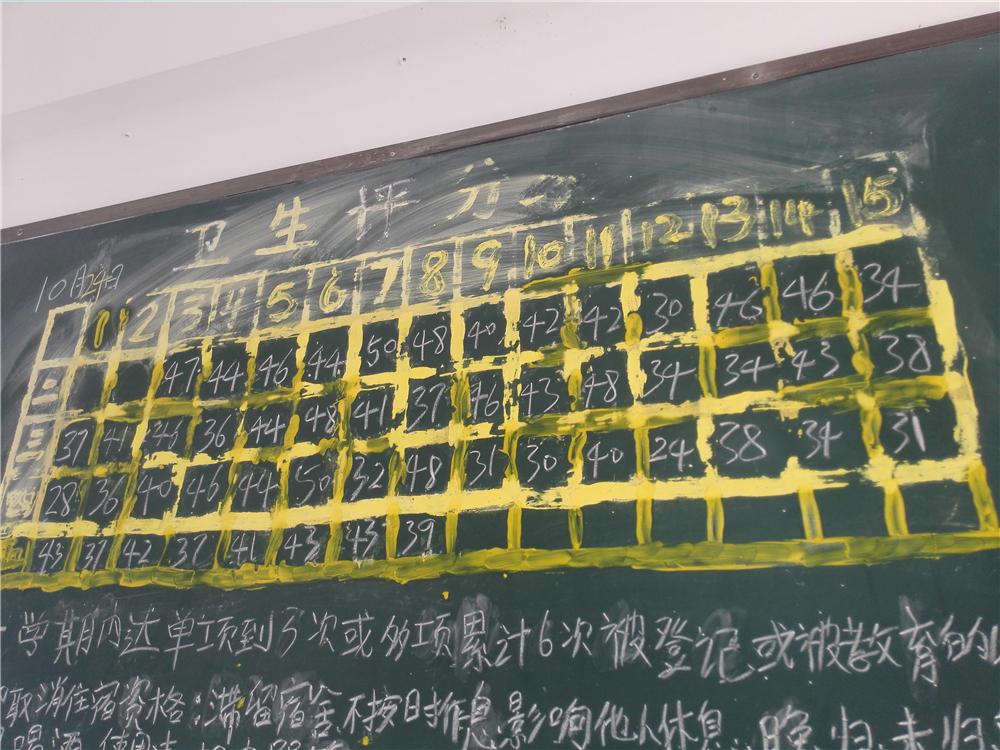 卫生评分
10月24日
1 2 3 4 5 6 7 8 9 10 11 12 13 14 15
二 47 44 46 44 50 48 40 42 42 30 46 46 34
三 37 41 46 36 44 48 41 37 46 43 48 34 34 43 38
四 28 36 40 46 44 50 32 48 31 30 40 24 38 34 31
五 43 37 42 37 41 43 43 39
学期内达单项到3次或多项累计6次被登记或被教育的
取消住宿资格:滞留宿舍不按时作息影响他人休息、晚归未归
喝酒